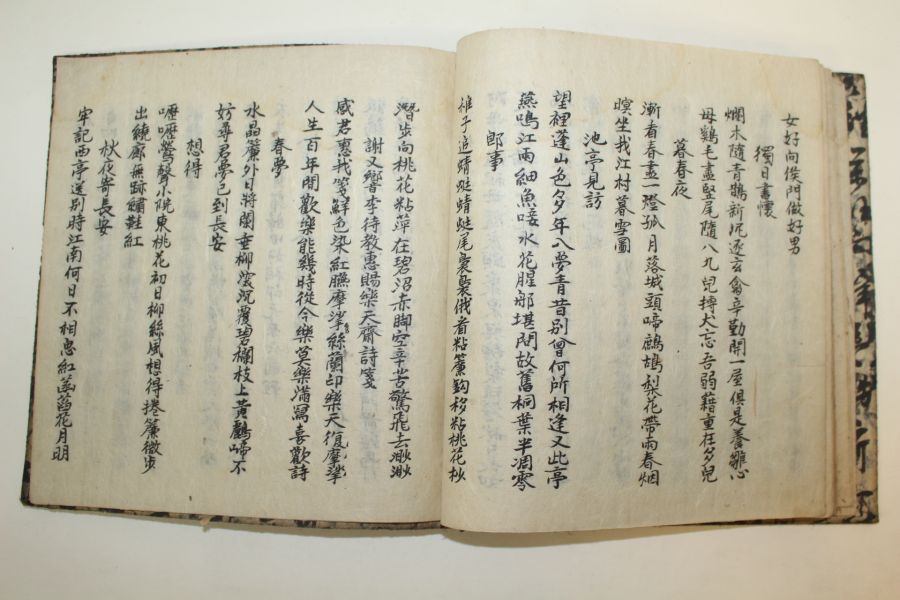 女好向侯門做好男
獨日書懷
爛木隨青鵲新泥逐玄禽辛勤開一屋俱是養雛心
母鷄毛盡竪尾隨八九兒搏犬忘吾弱藉重在多兒
暮春夜
漸看春盡一燈孤月落城頭啼鷓鴣梨花帶雨春烟
暝坐我江村暮雪圖
池亭見訪
望裡蓬山色多年入夢青昔別曾何所相逢又此亭
燕鳴江雨細魚唼水花腥那堪問故舊桐葉半凋零
卽事
稚子追蜻蜓蜻蜓尾裊裊俄者粘簾鉤移粘桃花杪
潛步向桃花粘萍在碧沼赤脚空辛苦驚飛去渺渺
謝又響李待教惠賜樂天齋詩箋
感君惠我箋鮮色染紅臙摩挲絲蘭印樂天復摩挲
人生百年間歡樂能幾時從今樂莫樂滿寫喜歡詩
春夢
水晶簾外日將闌垂柳深沉覆碧欄枝上黃鸝啼不
妨尋君夢已到長安
想得
嚦嚦鶯聲小院東桃花初日柳絲風想得捲簾微步
出繞廊無跡繡鞋紅
秋夜寄長安
牢記西亭送別時江南何日不相思紅菡萏花月明